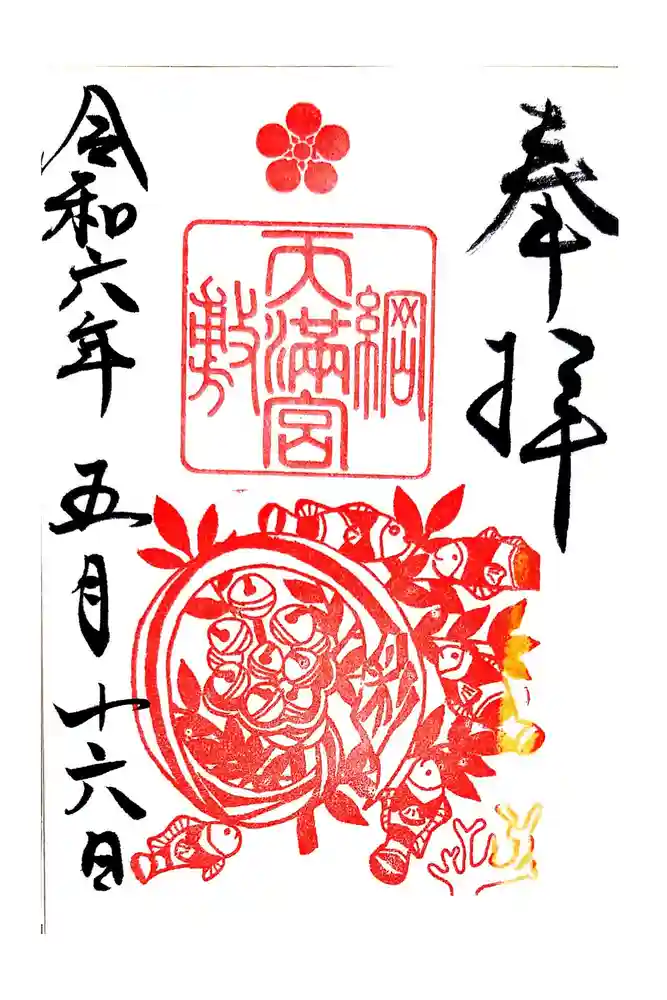 奉拝
綱
天満宮
敷
令和六年 五月十六日